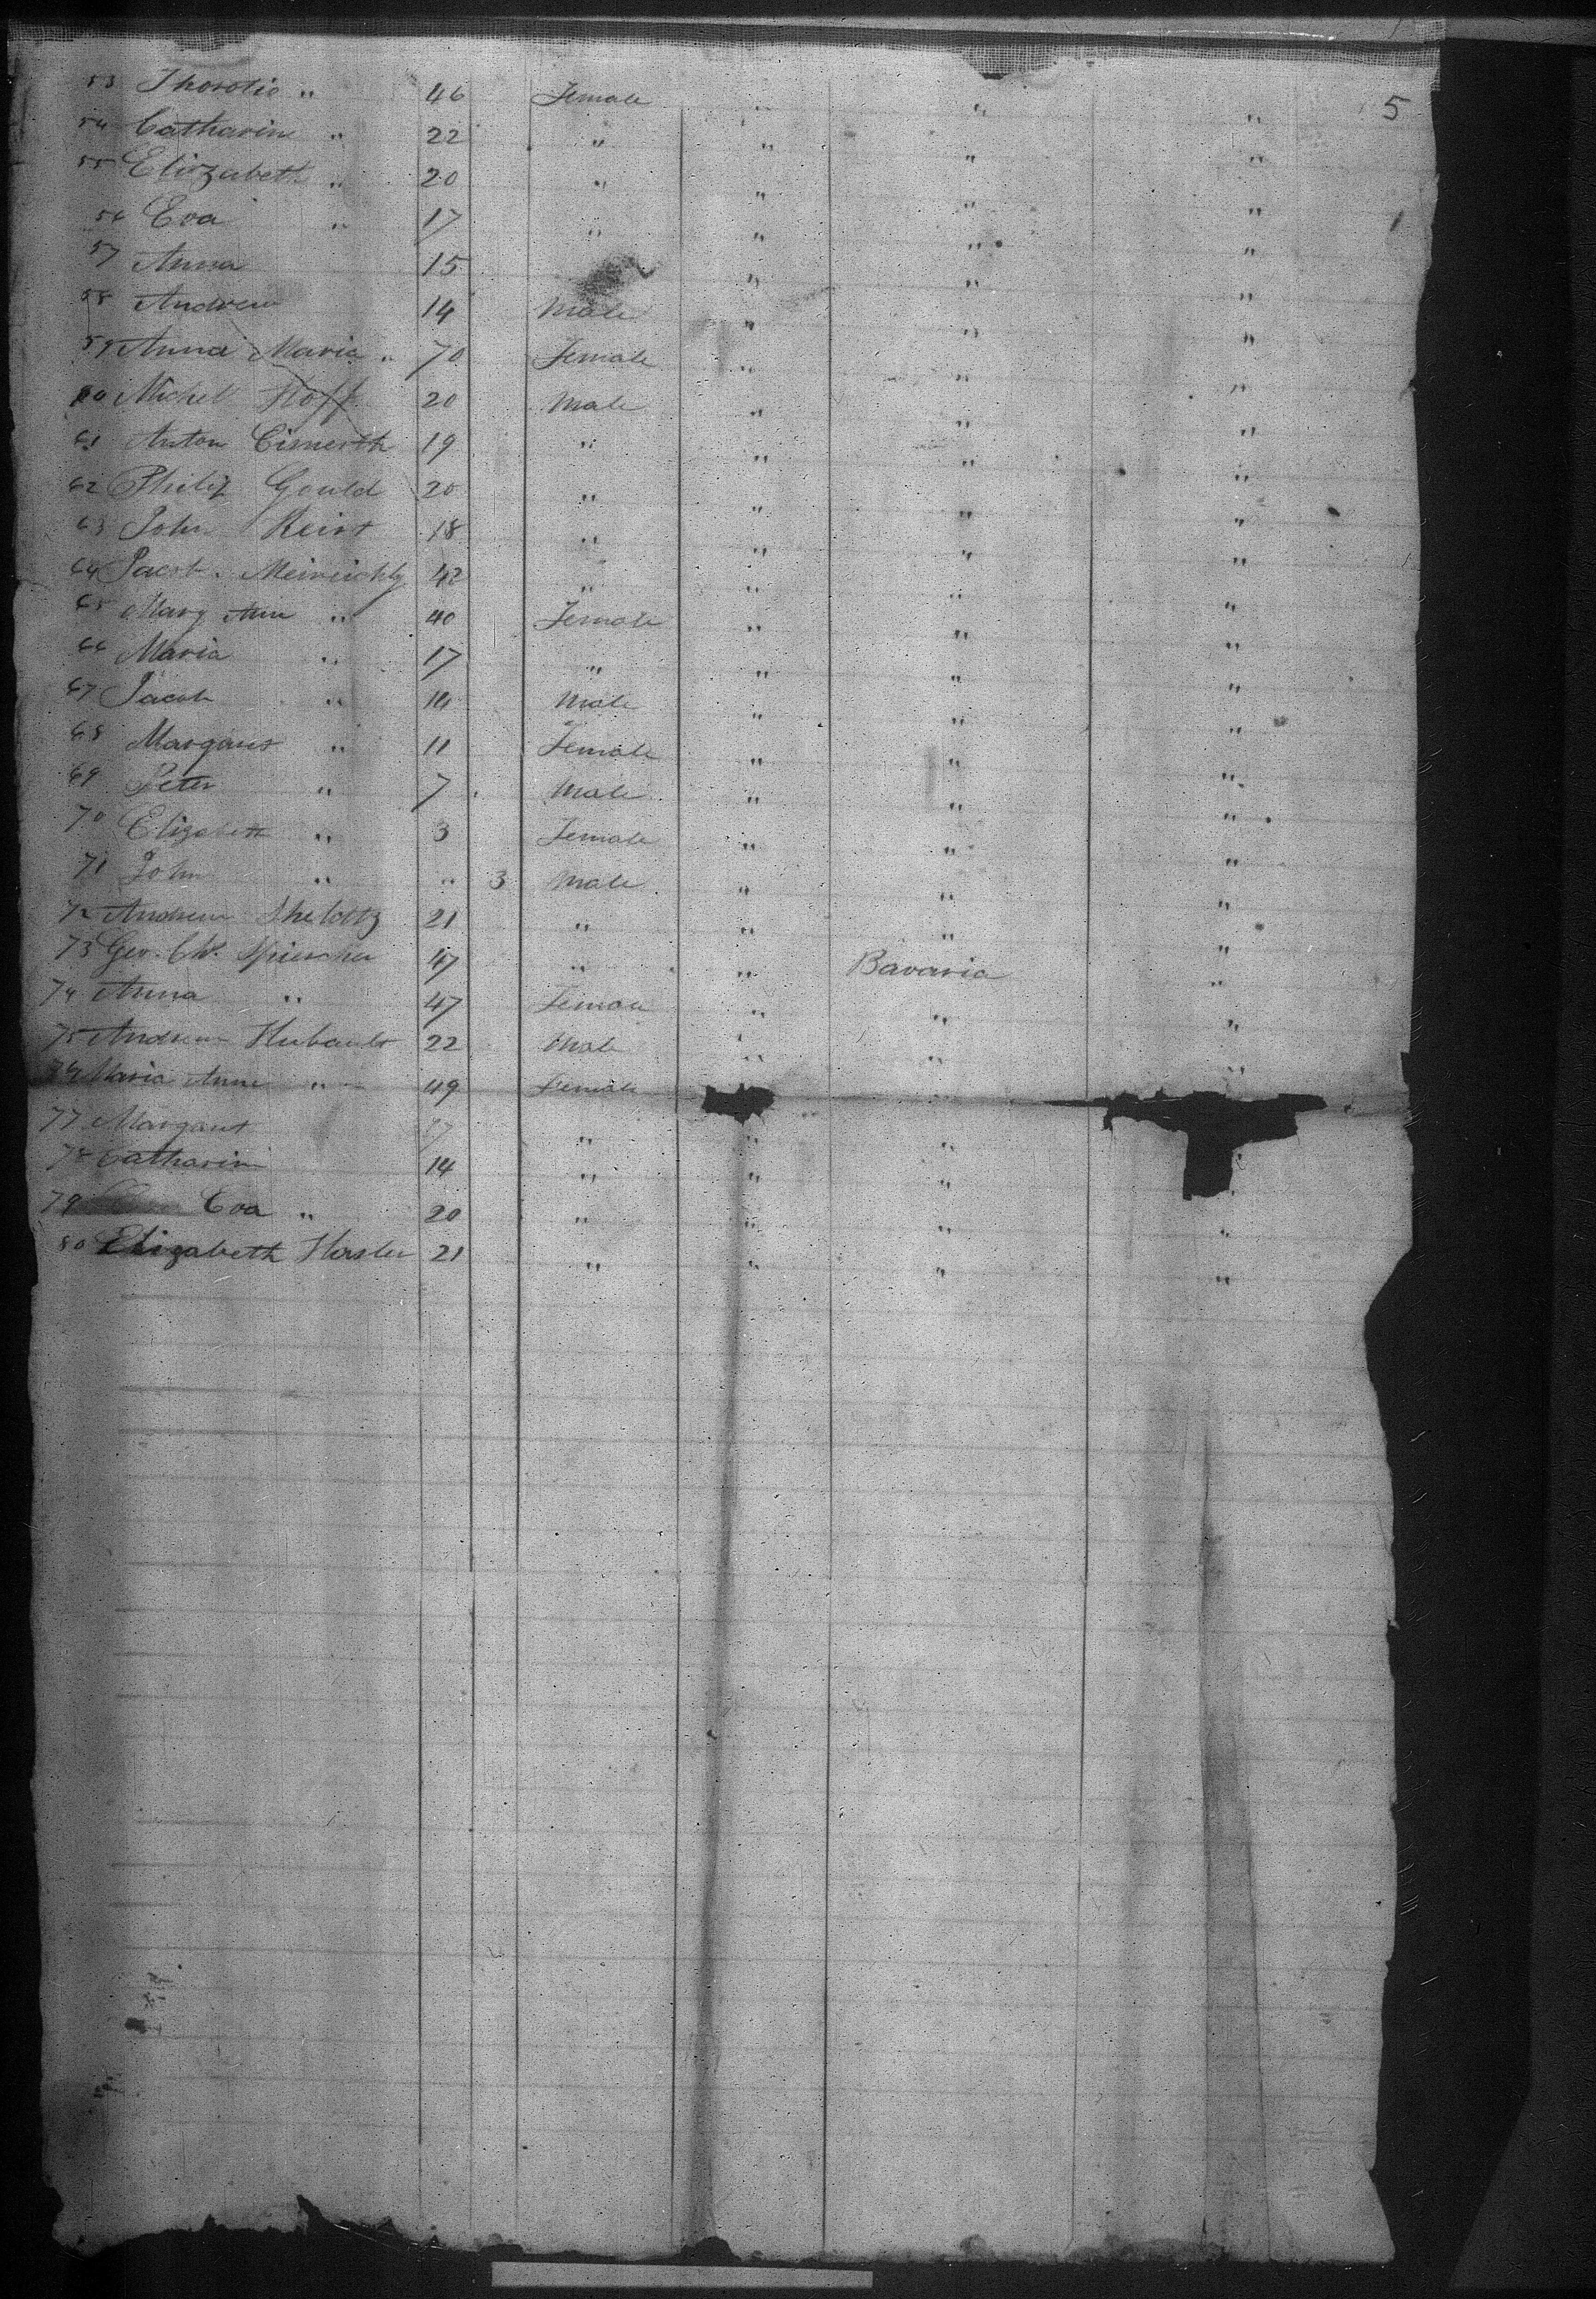 5
53 Thorotio " 46 Female " " "
54 Catharine " 22 " " " "
55 Elizabeth " 20 " " " "
56 Eva " 17 " " " "
57 Anna 15 " " "
58 Andrew 14 Male " " "
59 Anna Maria " 70 Female " " "
60 Michel Hoff 20 Male " " "
61 Anton 19 " " " "
62 Philip Gould 20 " " " "
63 John 18 " " " "
64 Jacob 42 " " " "
65 Mary Ann " 40 Female " " "
66 Maria " 17 " " " "
67 Jacob " 14 Male " " "
68 " 11 Female " " "
69 Peter " 7 Male " " "
70 Elizabeth " 3 Female " " "
71 John " " 3 Male " " "
72 Andrew 21 " " " "
73 Geo. 47 " " Bavaria "
74 Anna " 47 Female " " "
75 Andrew 22 Male " " "
76 Maria Anne " 49 Female "
77 " " "
78 Catharine 14 " " " "
79 Eva " 20 " " " "
80 Elizabeth Hasler 21 " " " "